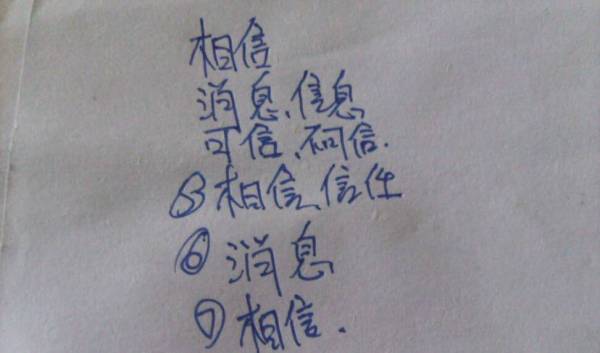 相信
消息、信息
可信、不可信.
⑤相信、信任
⑥消息
⑦相信.